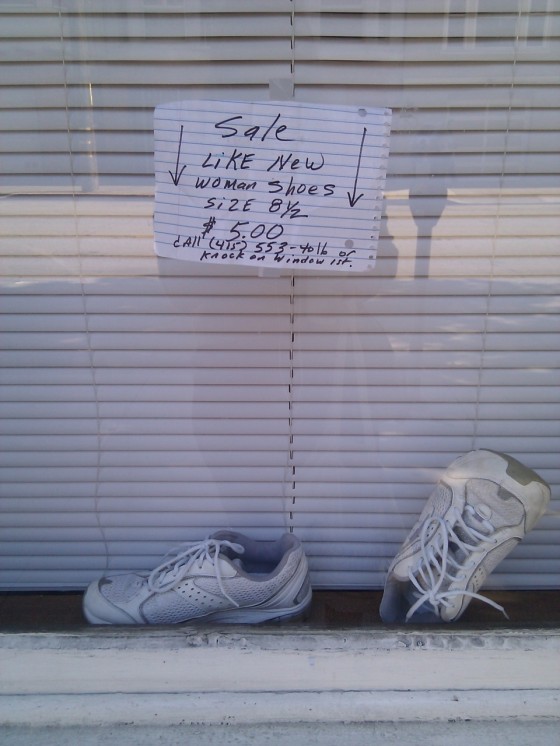 Sale
LiKE New
woman shoes
SiZE 8½
$ 5.00
CAll (415) 553-4016 or
knock on window 1st.